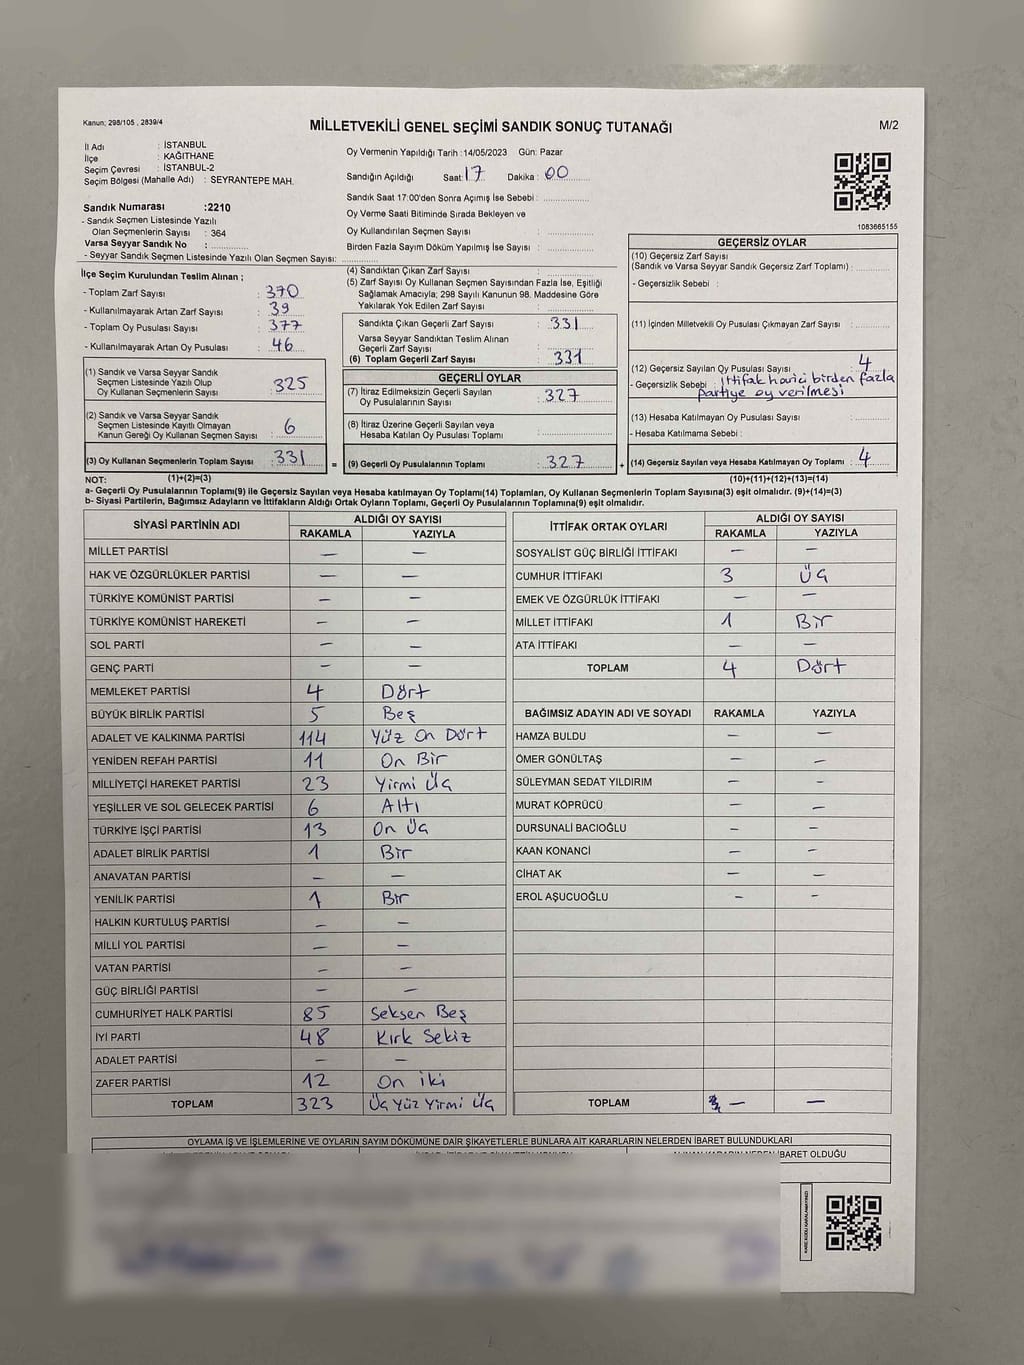 Kanun; 298/105 , 2839/4
MİLLETVEKİLİ GENEL SEÇİMİ SANDIK SONUÇ TUTANAĞI
M/2
İl Adı : İSTANBUL
İlçe : KAĞITHANE
Seçim Çevresi : İSTANBUL-2
Seçim Bölgesi (Mahalle Adı) : SEYRANTEPE MAH.
Sandık Numarası :2210
- Sandık Seçmen Listesinde Yazılı
Olan Seçmenlerin Sayısı : 364
Varsa Seyyar Sandık No :
- Seyyar Sandık Seçmen Listesinde Yazılı Olan Seçmen Sayısı:
Oy Vermenin Yapıldığı Tarih :14/05/2023 Gün: Pazar
Sandığın Açıldığı Saat: 17 Dakika : 00
Sandık Saat 17:00'den Sonra Açımış İse Sebebi :
Oy Verme Saati Bitiminde Sırada Bekleyen ve
Oy Kullandırılan Seçmen Sayısı :
Birden Fazla Sayım Döküm Yapılmış İse Sayısı :
1083665155
İlçe Seçim Kurulundan Teslim Alınan ;
- Toplam Zarf Sayısı : 370
- Kullanılmayarak Artan Zarf Sayısı : 39
- Toplam Oy Pusulası Sayısı : 377
- Kullanılmayarak Artan Oy Pusulası : 46
(1) Sandık ve Varsa Seyyar Sandık
Seçmen Listesinde Yazılı Olup
Oy Kullanan Seçmenlerin Sayısı : 325
(2) Sandık ve Varsa Seyyar Sandık
Seçmen Listesinde Kayıtlı Olmayan
Kanun Gereği Oy Kullanan Seçmen Sayısı : 6
(3) Oy Kullanan Seçmenlerin Toplam Sayısı : 331
(4) Sandıktan Çıkan Zarf Sayısı :
(5) Zarf Sayısı Oy Kullanan Seçmen Sayısından Fazla İse, Eşitliği
Sağlamak Amacıyla; 298 Sayılı Kanunun 98. Maddesine Göre
Yakılarak Yok Edilen Zarf Sayısı :
Sandıkta Çıkan Geçerli Zarf Sayısı : 331
Varsa Seyyar Sandıktan Teslim Alınan
Geçerli Zarf Sayısı :
(6) Toplam Geçerli Zarf Sayısı : 331
GEÇERLİ OYLAR
(7) İtiraz Edilmeksizin Geçerli Sayılan
Oy Pusulalarının Sayısı : 327
(8) İtiraz Üzerine Geçerli Sayılan veya
Hesaba Katılan Oy Pusulası Toplamı :
= (9) Geçerli Oy Pusulalarının Toplamı : 327 +
GEÇERSİZ OYLAR
(10) Geçersiz Zarf Sayısı
(Sandık ve Varsa Seyyar Sandık Geçersiz Zarf Toplamı) :
- Geçersizlik Sebebi :
(11) İçinden Milletvekili Oy Pusulası Çıkmayan Zarf Sayısı :
(12) Geçersiz Sayılan Oy Pusulası Sayısı : 4
- Geçersizlik Sebebi : İttifak harici birden fazla
partiye oy verilmesi
(13) Hesaba Katılmayan Oy Pusulası Sayısı :
- Hesaba Katılmama Sebebi :
(14) Geçersiz Sayılan veya Hesaba Katılmayan Oy Toplamı : 4
NOT: (1)+(2)=(3) (10)+(11)+(12)+(13)=(14)
a- Geçerli Oy Pusulalarının Toplamı(9) ile Geçersiz Sayılan veya Hesaba katılmayan Oy Toplamı(14) Toplamları, Oy Kullanan Seçmenlerin Toplam Sayısına(3) eşit olmalıdır. (9)+(14)=(3)
b- Siyasi Partilerin, Bağımsız Adayların ve İttifakların Aldığı Ortak Oyların Toplamı, Geçerli Oy Pusulalarının Toplamına(9) eşit olmalıdır.
SİYASİ PARTİNİN ADI ALDIĞI OY SAYISI
RAKAMLA YAZIYLA
MİLLET PARTİSİ — —
HAK VE ÖZGÜRLÜKLER PARTİSİ — —
TÜRKİYE KOMÜNİST PARTİSİ — —
TÜRKİYE KOMÜNİST HAREKETİ — —
SOL PARTİ — —
GENÇ PARTİ — —
MEMLEKET PARTİSİ 4 Dört
BÜYÜK BİRLİK PARTİSİ 5 Beş
ADALET VE KALKINMA PARTİSİ 114 Yüz On Dört
YENİDEN REFAH PARTİSİ 11 On Bir
MİLLİYETÇİ HAREKET PARTİSİ 23 Yirmi Üç
YEŞİLLER VE SOL GELECEK PARTİSİ 6 Altı
TÜRKİYE İŞÇİ PARTİSİ 13 On Üç
ADALET BİRLİK PARTİSİ 1 Bir
ANAVATAN PARTİSİ — —
YENİLİK PARTİSİ 1 Bir
HALKIN KURTULUŞ PARTİSİ — —
MİLLİ YOL PARTİSİ — —
VATAN PARTİSİ — —
GÜÇ BİRLİĞİ PARTİSİ — —
CUMHURİYET HALK PARTİSİ 85 Seksen Beş
İYİ PARTİ 48 Kırk Sekiz
ADALET PARTİSİ — —
ZAFER PARTİSİ 12 On iki
TOPLAM 323 Üç Yüz Yirmi Üç
İTTİFAK ORTAK OYLARI ALDIĞI OY SAYISI
RAKAMLA YAZIYLA
SOSYALİST GÜÇ BİRLİĞİ İTTİFAKI — —
CUMHUR İTTİFAKI 3 Üç
EMEK VE ÖZGÜRLÜK İTTİFAKI — —
MİLLET İTTİFAKI 1 Bir
ATA İTTİFAKI — —
TOPLAM 4 Dört
BAĞIMSIZ ADAYIN ADI VE SOYADI RAKAMLA YAZIYLA
HAMZA BULDU — —
ÖMER GÖNÜLTAŞ — —
SÜLEYMAN SEDAT YILDIRIM — —
MURAT KÖPRÜCÜ — —
DURSUNALİ BACIOĞLU — —
KAAN KONANCİ — —
CİHAT AK — —
EROL AŞUCUOĞLU — —
TOPLAM — —
OYLAMA İŞ VE İŞLEMLERİNE VE OYLARIN SAYIM DÖKÜMÜNE DAİR ŞİKAYETLERLE BUNLARA AİT KARARLARIN NELERDEN İBARET BULUNDUKLARI
İBARET OLDUĞU